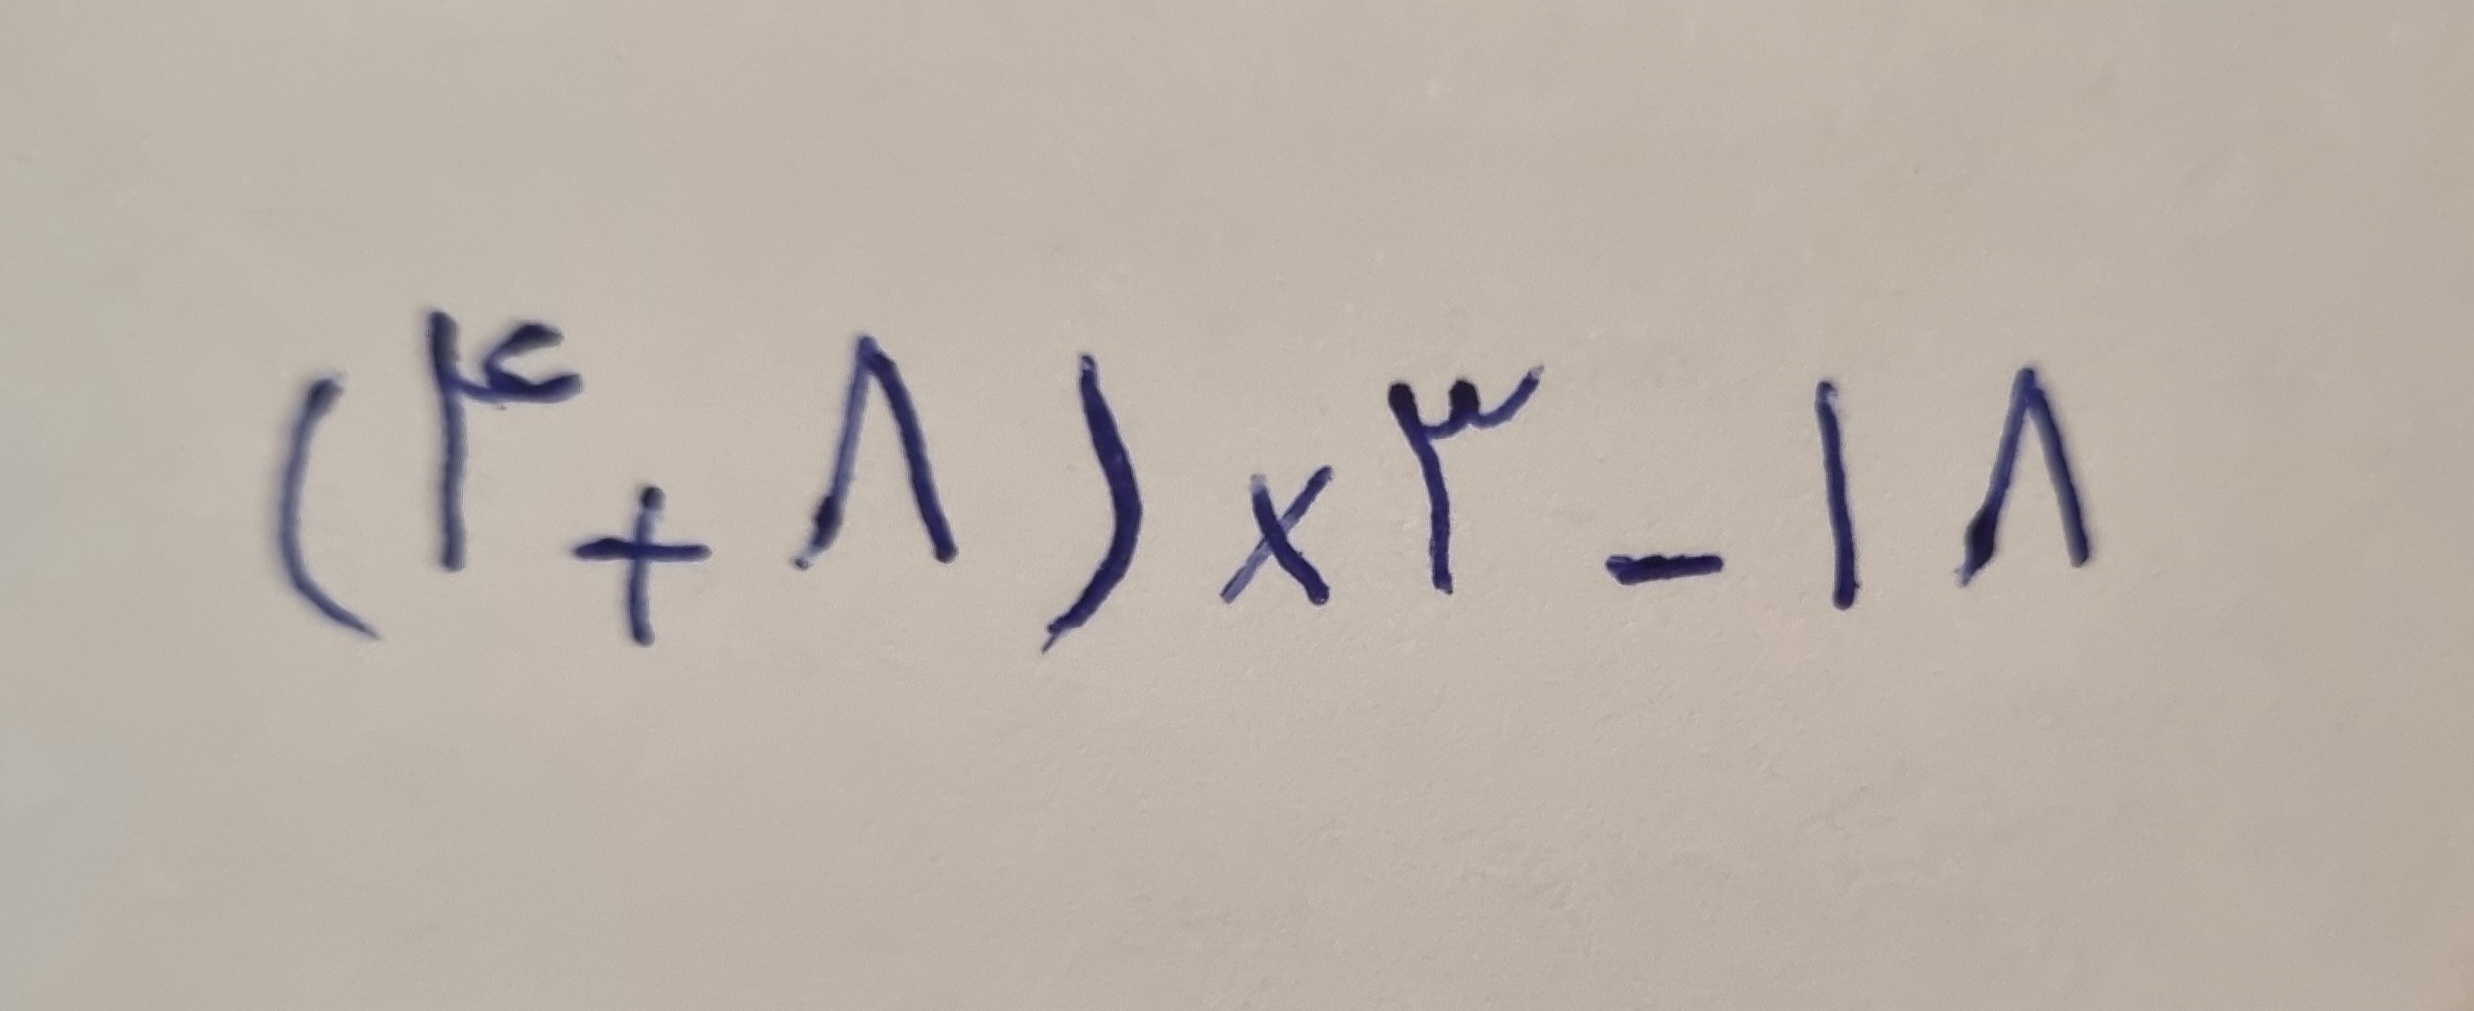 (۴+۸)×۳-۱۸